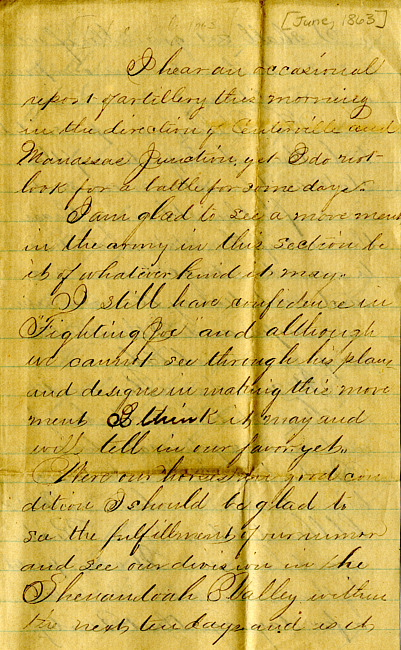 [June, 1863]
I hear an occasional
report of artillery this morning
in the direction of Centerville and
Manassas Junction, yet I do not
look for a battle for some days.
I am glad to see a move ment
in the army in this section be
it of whatever kind it may.
I still have confidence in
"Fighting Joe" and although
we cannot see through his plans
and designs in making this move
ment I think it may and
will tell in our favor yet.
Were our horses in good con
dition I should be glad to
see the fulfillment of our rumor
and see our division in the
Shenandoah Valley within
the next ten days and as it